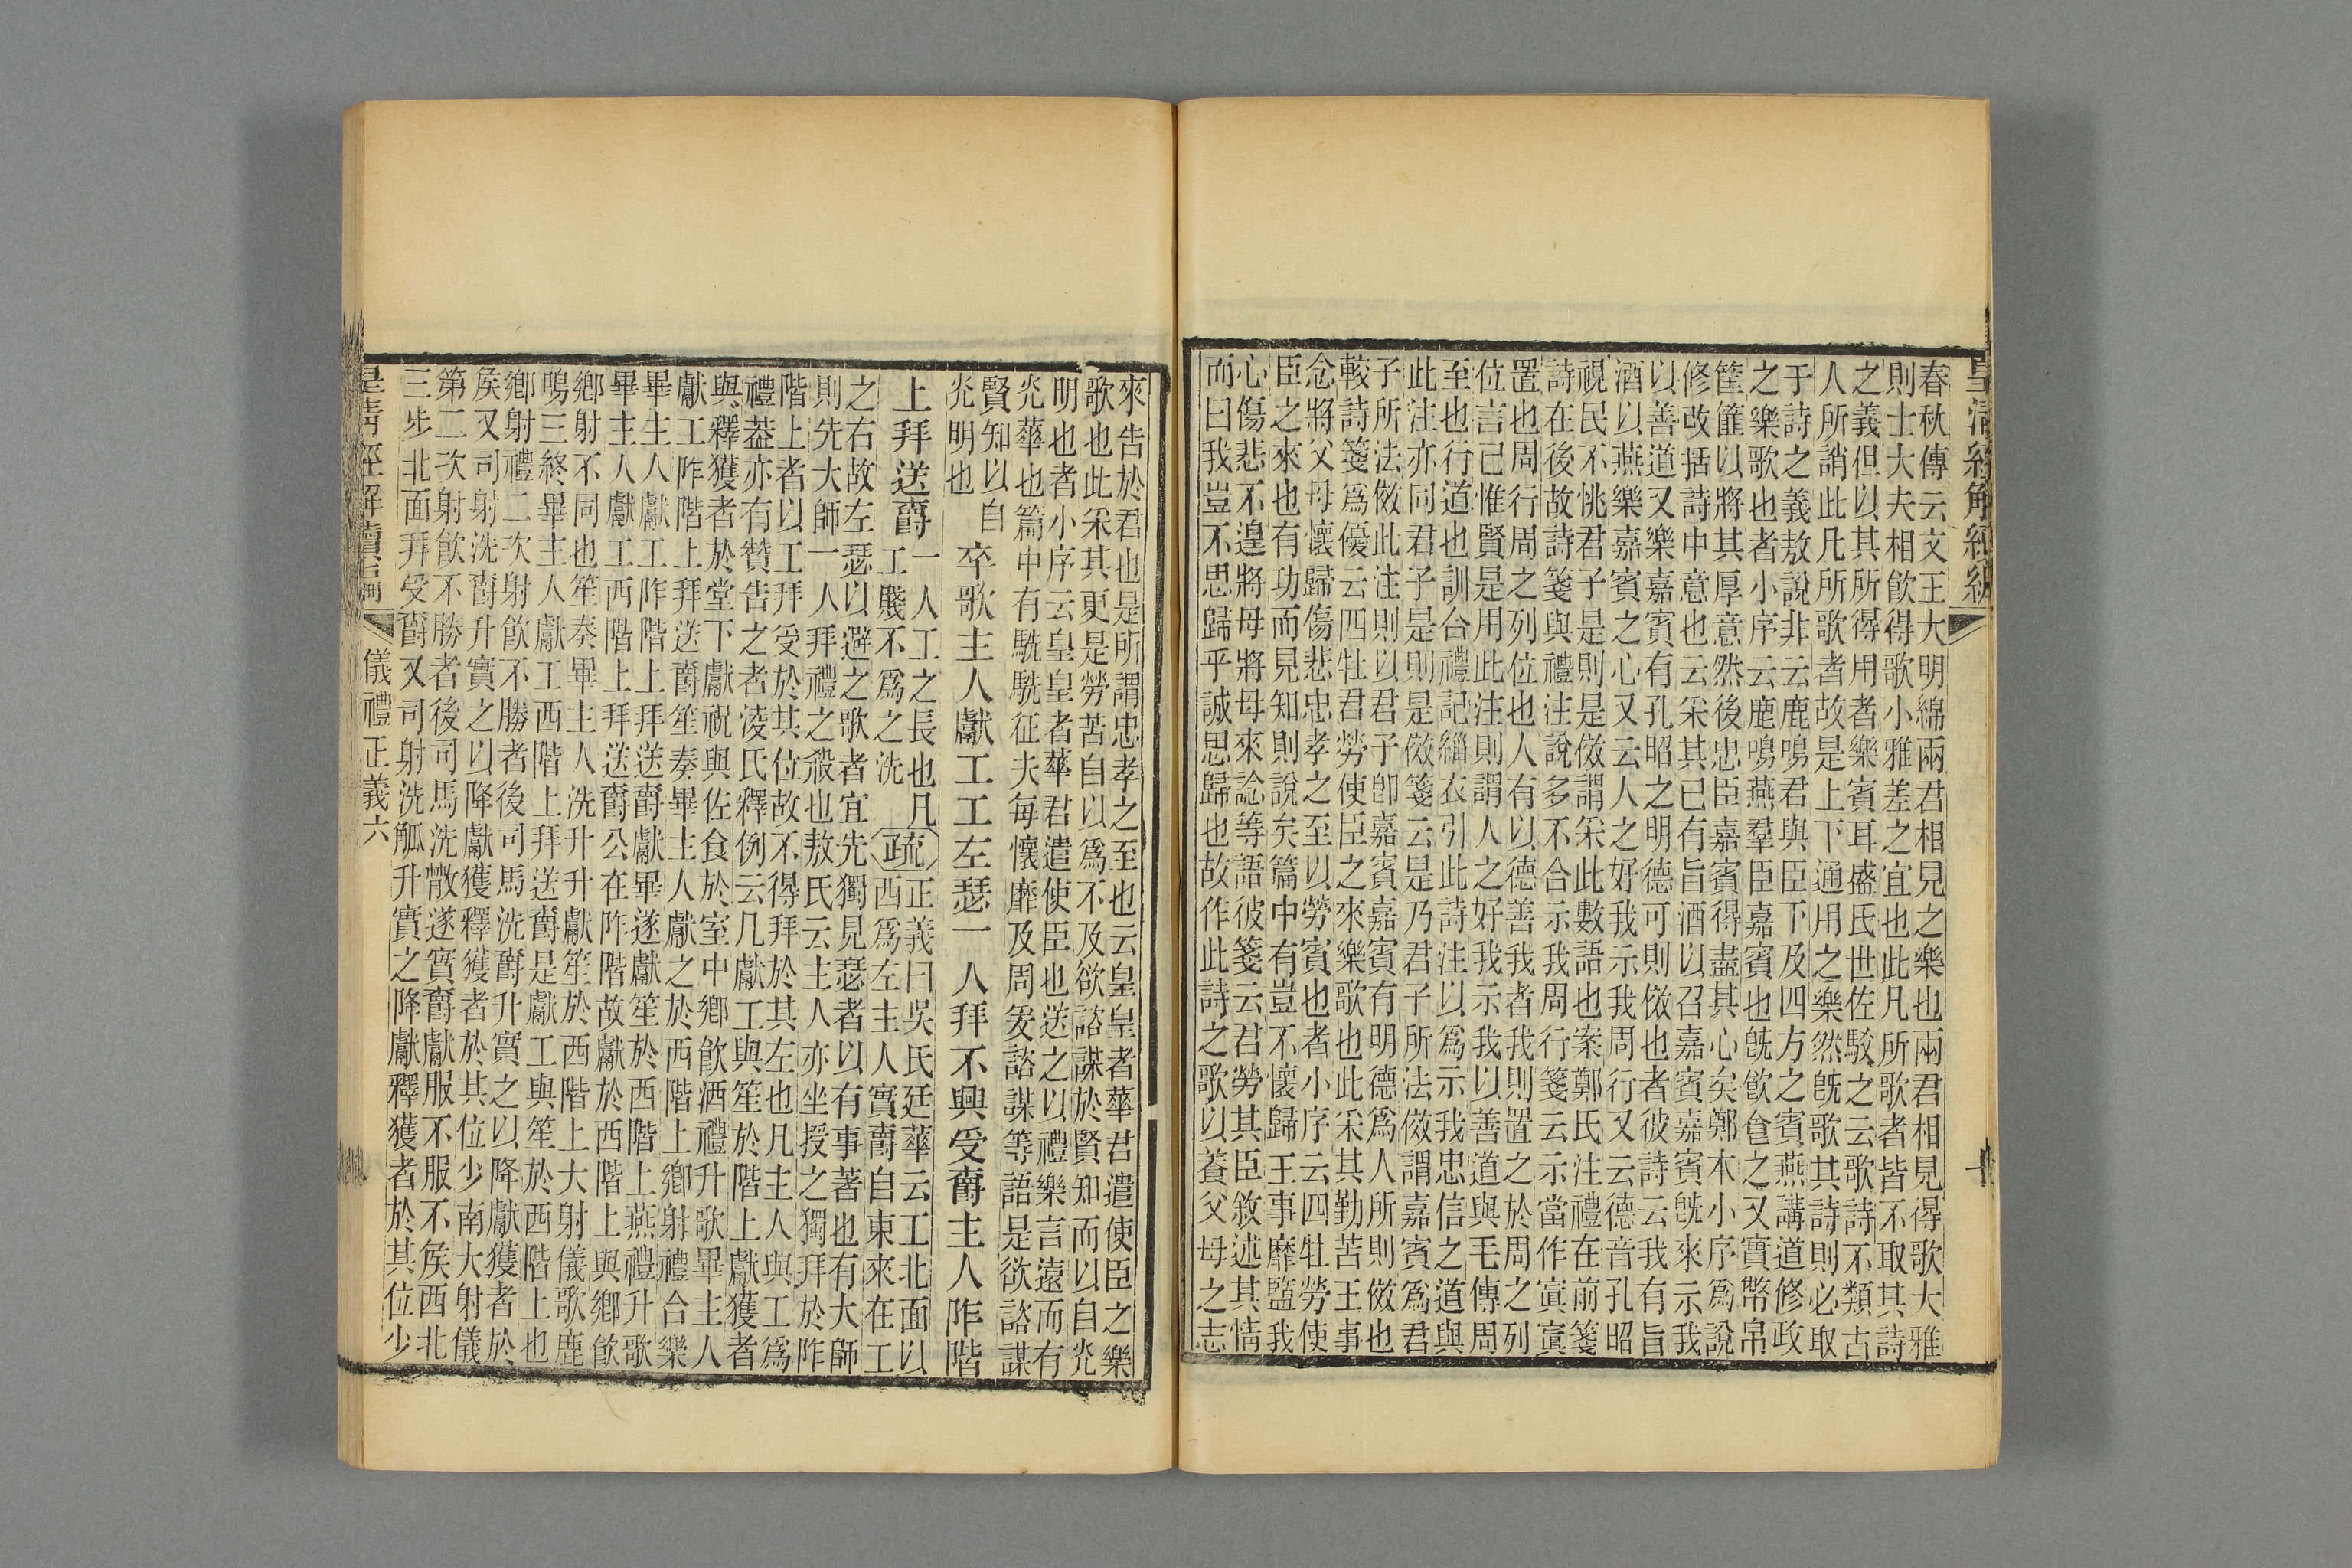 皇清經解續編
春秋傳云文王大明綿兩君相見之樂也兩君相見得歌大雅
則士大夫相飮得歌小雅差之宜也此凡所歌者皆不取其詩
之義但以其所得用者樂賓耳盛氏世佐駁之云歌詩不類古
人所誚此凡所歌者故是上下通用之樂然旣歌其詩則必取
于詩之義敖說非云鹿鳴君與臣下及四方之賓燕講道修政
之樂歌也者小序云鹿鳴燕羣臣嘉賓也旣飮食之又實幣帛
筐篚以將其厚意然後忠臣嘉賓得盡其心矣鄭本小序爲說
修改括詩中意也云采其已有旨酒以召嘉賓嘉賓旣來示我
以善道又樂嘉賓有孔昭之明德可則傚也者彼詩云我有旨
酒以燕樂嘉賓之心又云人之好我示我周行又云德音孔昭
視民不恌君子是則是傚謂采此數語也案鄭氏注禮在前箋
詩在後故詩箋與禮注說多不合示我周行箋云示當作寘寘
置也周行周之列位也人有以德善我者我則置之於周之列
位言己惟賢是用此注則謂人之好我示我以善道與毛傳周
至也行道也訓合禮記緇衣引此詩注以爲示我忠信之道與
此注亦同君子是則是傚箋云是乃君子所法傚謂嘉賓爲君
子所法傚此注則以君子卽嘉賓嘉賓有明德爲人所則傚也
較詩箋爲優云四牡君勞使臣之來樂歌也此采其勤苦王事
念將父母懷歸傷悲忠孝之至以勞賓也者小序云四牡勞使
臣之來也有功而見知則說矣篇中有豈不懷歸王事靡盬我
心傷悲不遑將母將母來諗等語彼箋云君勞其臣敘述其情
而曰我豈不思歸乎誠思歸也故作此詩之歌以養父母之志
來告於君也是所謂忠孝之至也云皇皇者華君遣使臣之樂
歌也此采其更是勞苦自以爲不及欲諮謀於賢知而以自光
明也者小序云皇皇者華君遣使臣也送之以禮樂言遠而有
光華也篇中有駪駪征夫每懷靡及周爰諮謀等語是欲諮謀
賢知以自
光明也
卒歌主人獻工工左瑟一人拜不興受爵主人阼階
上拜送爵
一人工之長也凡
工賤不爲之洗
疏
正義曰吳氏廷華云工北面以
西爲左主人實爵自東來在工
之右故左瑟以避之歌者宜先獨見瑟者以有事著也有大師
則先大師一人拜禮之殺也敖氏云主人亦坐授之獨拜於阼
階上者以工拜受於其位故不得拜於其左也凡主人與工爲
禮葢亦有贊告之者淩氏釋例云凡獻工與笙於階上獻獲者
與釋獲者於堂下獻祝與佐食於室中鄉飮酒禮升歌畢主人
獻工阼階上拜送爵笙奏畢主人獻之於西階上鄉射禮合樂
畢主人獻工阼階上拜送爵獻畢遂獻笙於西階上燕禮升歌
畢主人獻工西階上拜送爵公在阼階故獻於西階上與鄉飮
鄉射不同也笙奏畢主人洗升升獻笙於西階上大射儀歌鹿
鳴三終畢主人獻工西階上拜送爵是獻工與笙於西階上也
鄉射禮二次射飮不勝者後司馬洗爵升實之以降獻獲者於
侯又司射洗爵升實之以降獻獲釋獲者於其位少南大射儀
第二次射飮不勝者後司馬洗散遂實爵獻服不服不侯西北
三步北面拜受爵又司射洗觚升實之降獻釋獲者於其位少
皇清經解續
儀禮正義六